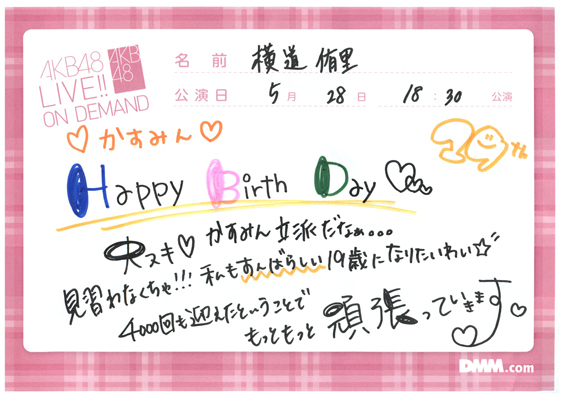 AKB48
LIVE!!
ON DEMAND
AKB
48
名前 横道侑里
公演日 5月28日 18:30 公演
♡かすみん♡
Happy Birth Day
大スキ♡ かすみん立派だなぁ。。。
見習わなくちゃ!!! 私もすんばらしい19歳になりたいわい☆
4000回も迎えたということで
もっともっと頑張っていきます
DMM.com